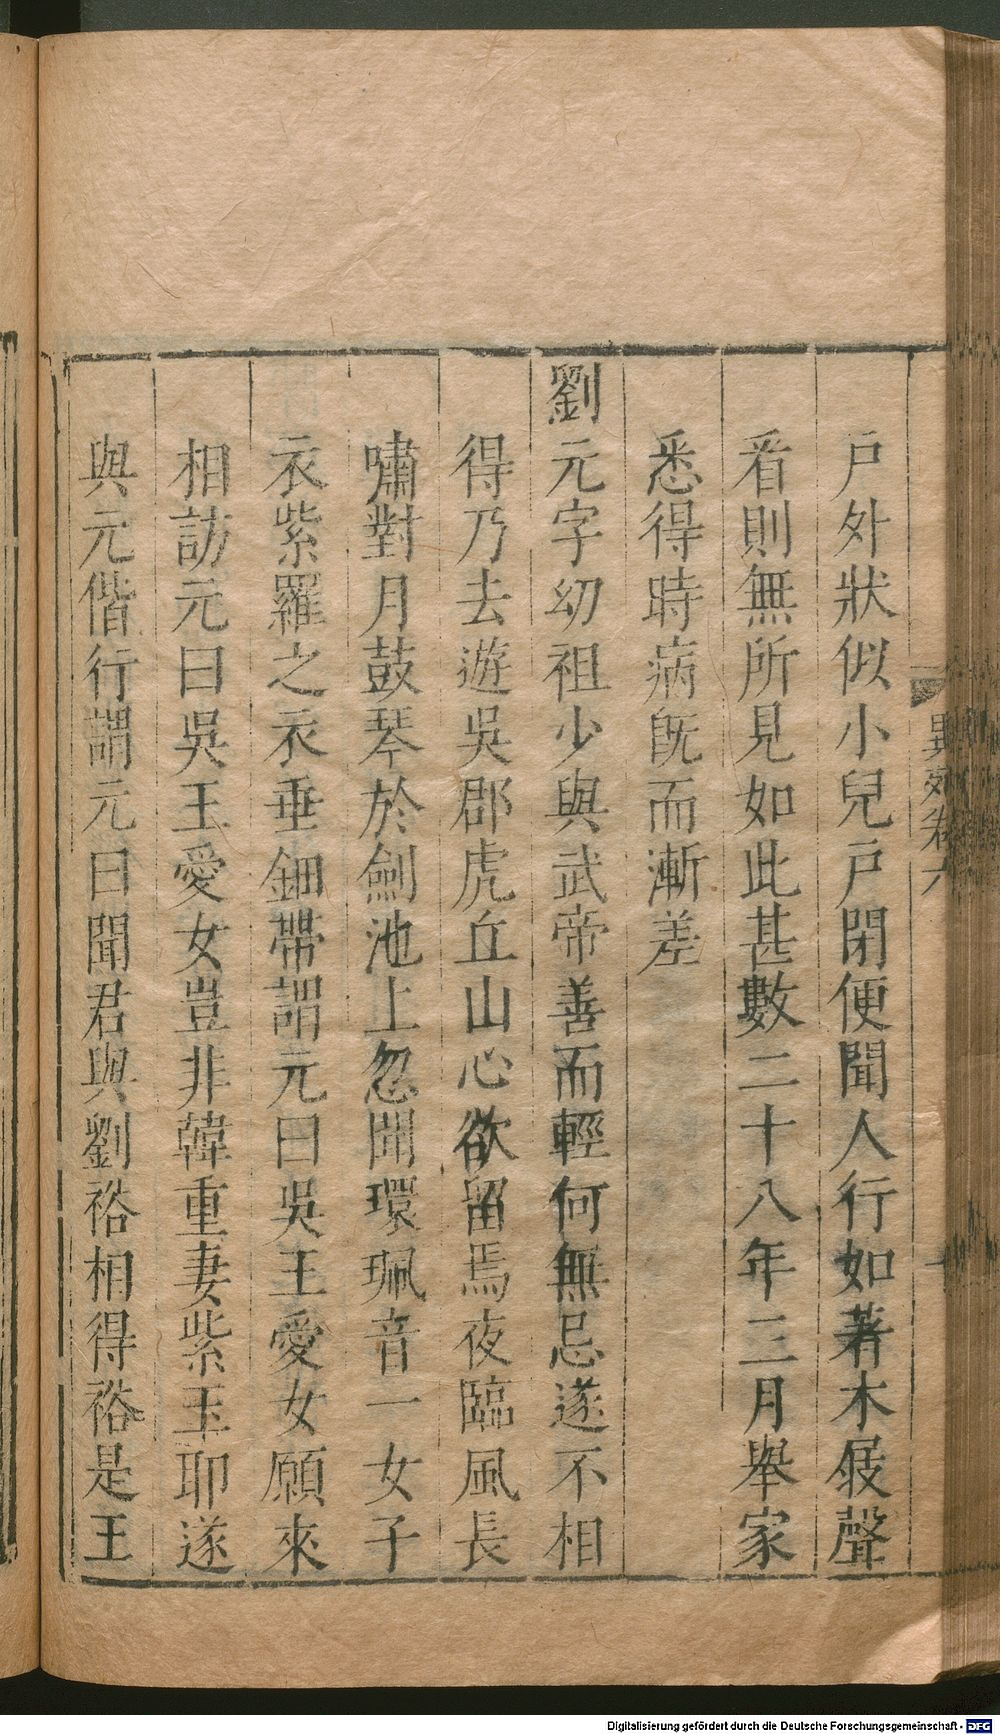 戸外狀似小兒戸閉便聞人行如著木屐聲
看則無所見如此甚數二十八年三月舉家
悉得時病旣而漸差
劉元字幼祖少與武帝善而輕何無忌遂不相
得乃去遊吳郡虎丘山心欲留焉夜臨風長
嘯對月鼓琴於劍池上忽聞環珮音一女子
衣紫羅之衣垂鈿帶謂元曰吳王愛女願來
相訪元曰吳王愛女豈非韓重妻紫玉耶遂
與元偕行謂元曰聞君與劉裕相得裕是王
異苑卷六
Digitalisierung gefördert durch die Deutsche Forschungsgemeinschaft - DFG